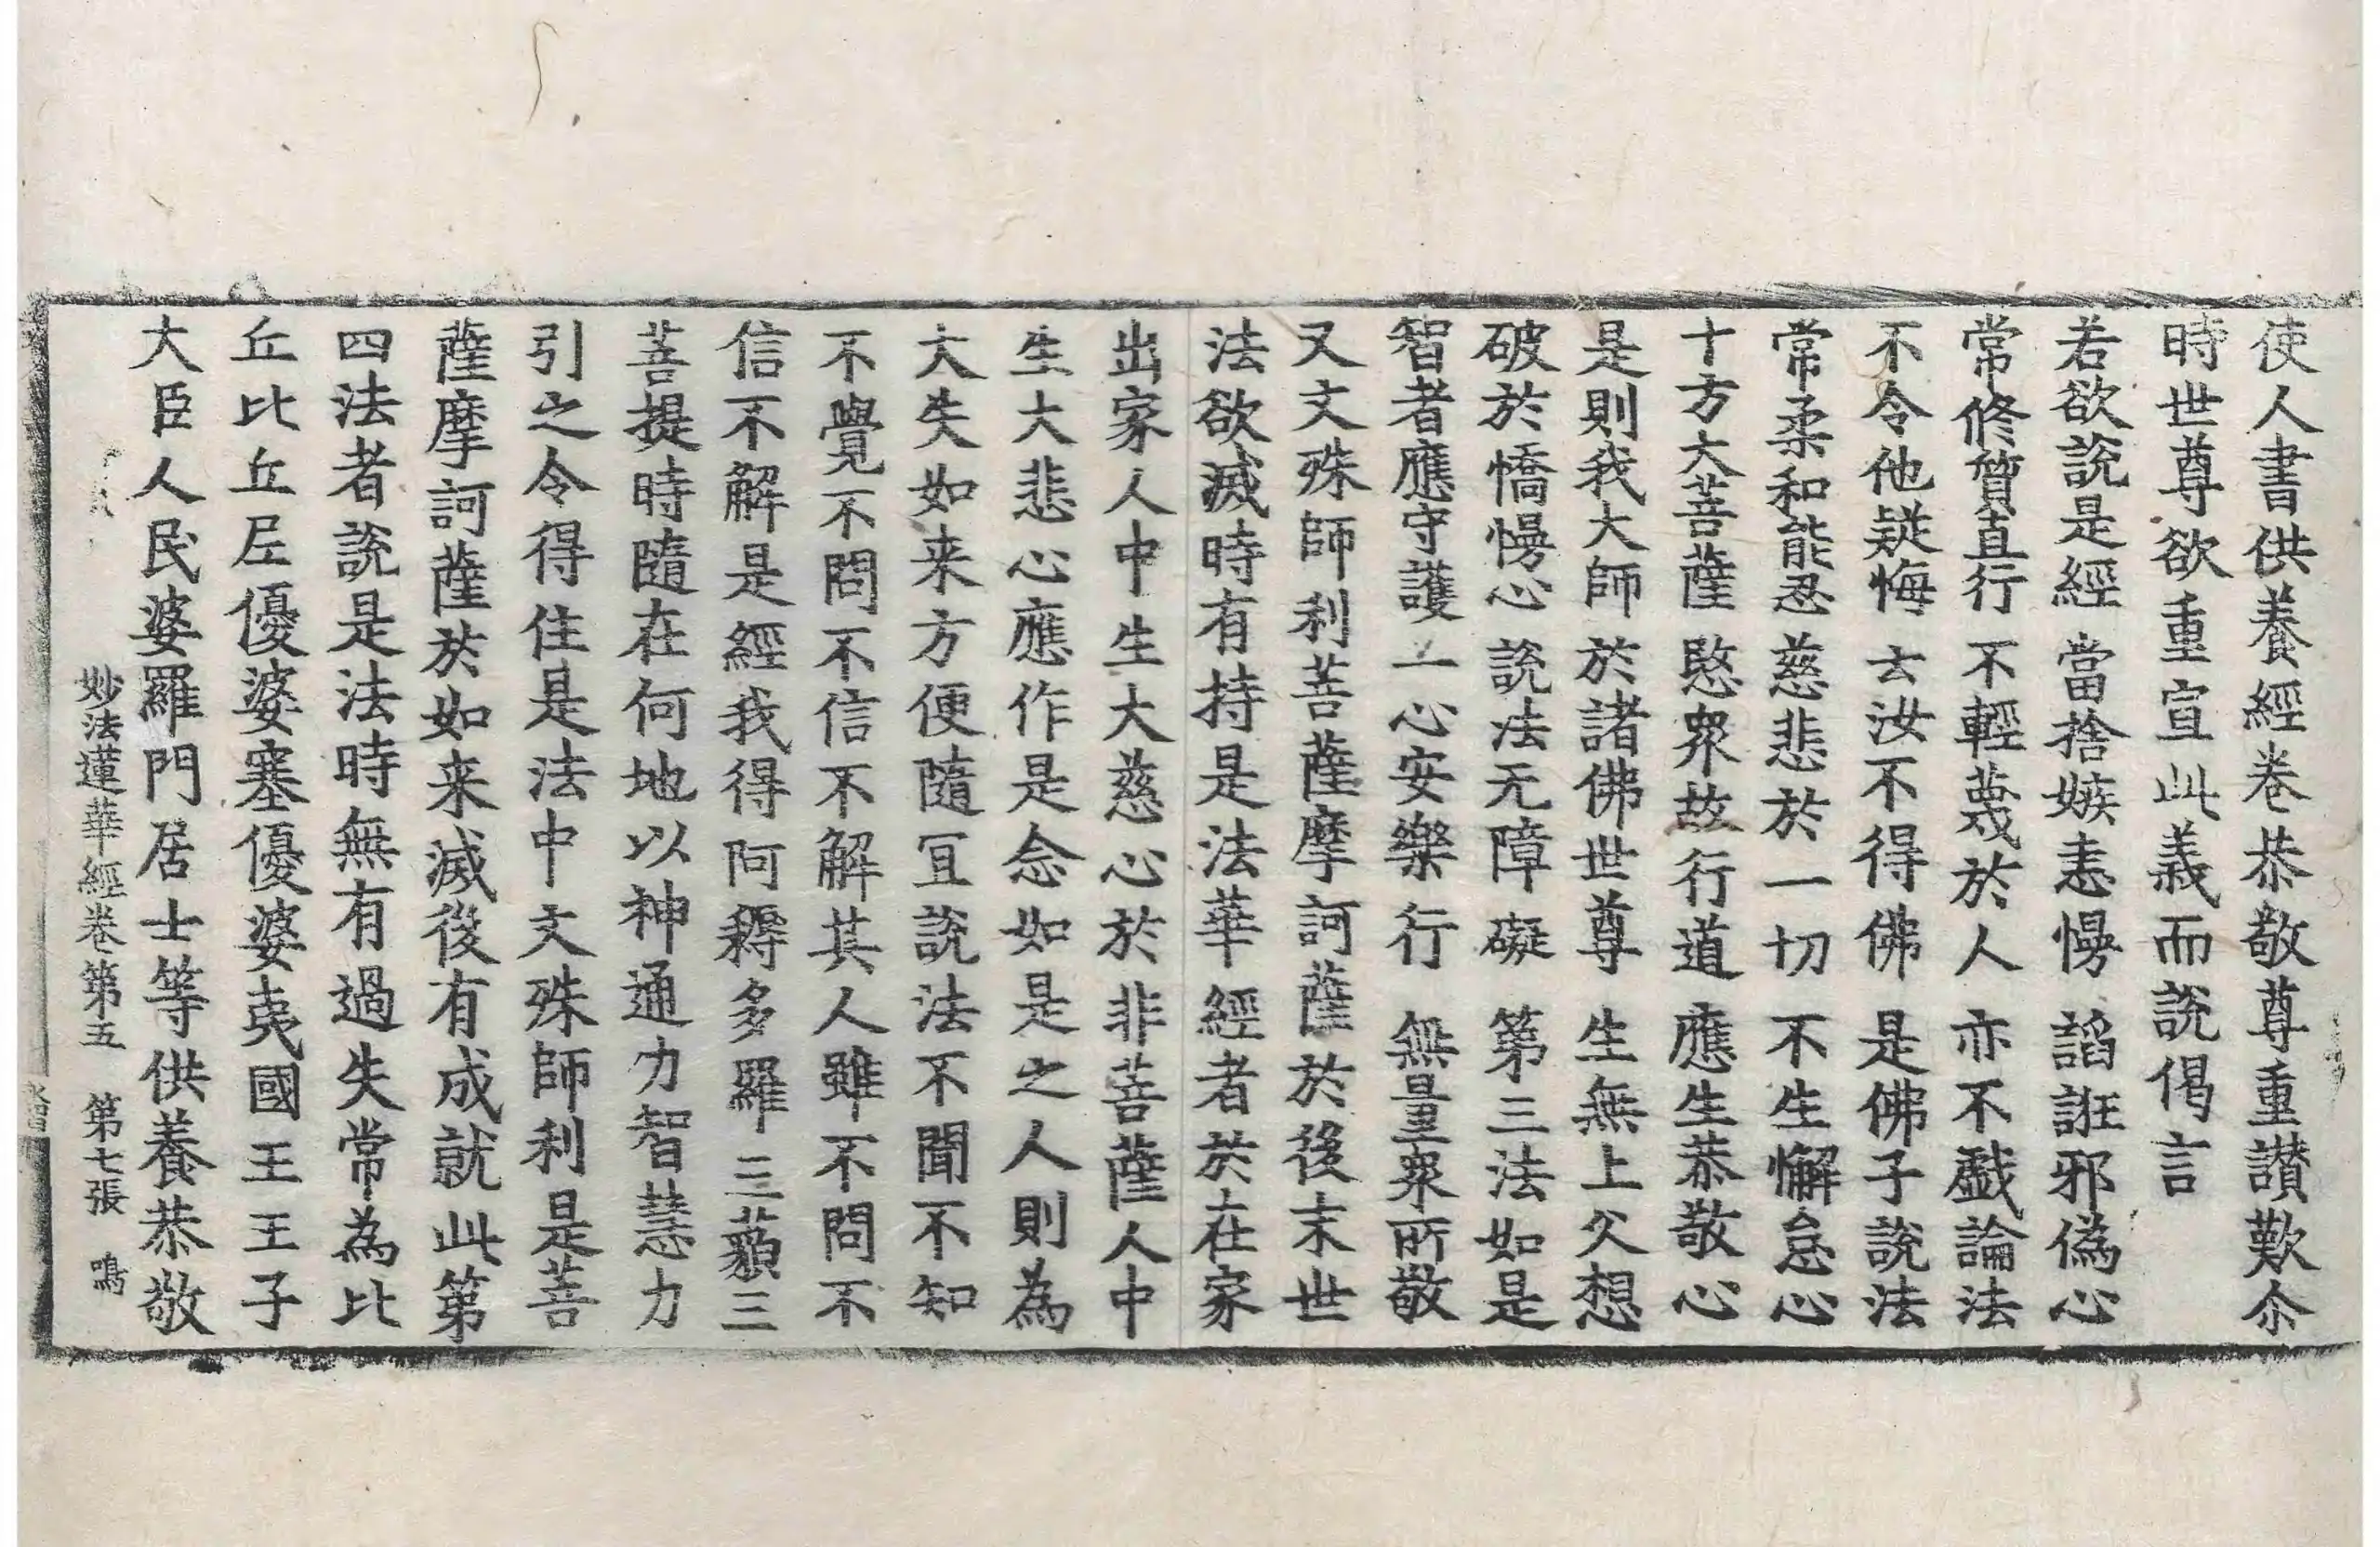 使人書供養經卷恭敬尊重讃歎尒
時世尊欲重宣此義而說偈言
若欲說是經 當捨嫉恚慢 諂誑邪偽心
常修質直行 不輕蔑於人 亦不戲論法
不令他疑悔 云汝不得佛 是佛子說法
常柔和能忍 慈悲於一切 不生懈怠心
十方大菩薩 愍衆故行道 應生恭敬心
是則我大師 於諸佛世尊 生無上父想
破於憍慢心 說法无障礙 第三法如是
智者應守護 一心安樂行 無量衆所敬
又文殊師利菩薩摩訶薩於後末世
法欲滅時有持是法華經者於在家
出家人中生大慈心於非菩薩人中
生大悲心應作是念如是之人則為
大失如来方便隨冝說法不聞不知
不覺不問不信不解其人雖不問不
信不解是經我得阿耨多羅三藐三
菩提時隨在何地以神通力智慧力
引之令得住是法中文殊師利是菩
薩摩訶薩於如来滅後有成就此第
四法者說是法時無有過失常為比
丘比丘尼優婆塞優婆夷國王王子
大臣人民婆羅門居士等供養恭敬
妙法蓮華經卷第五 第七張 鳴